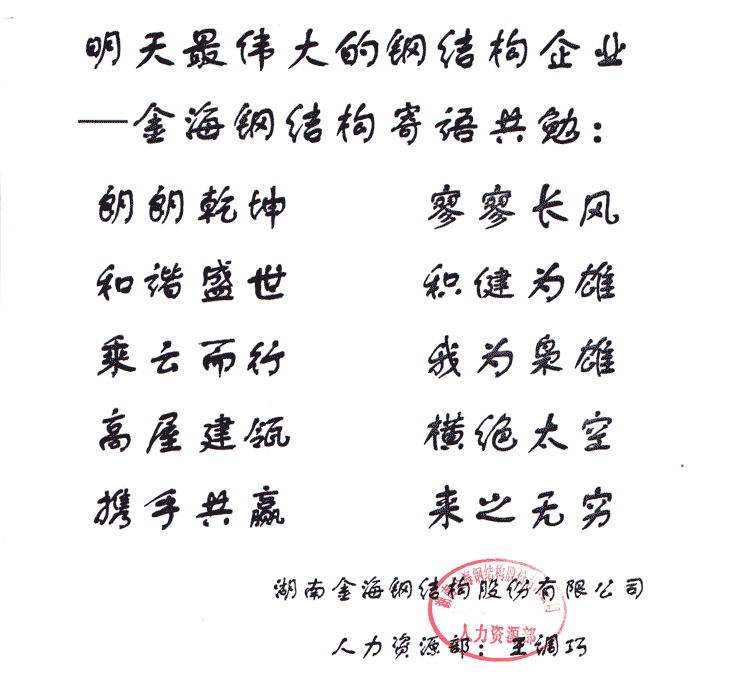 明天最伟大的钢结构企业
——金海钢结构寄语共勉：
朗朗乾坤 寥寥长风
和谐盛世 积健为雄
乘云而行 我为枭雄
高屋建瓴 横绝太空
携手共赢 来之无穷
湖南金海钢结构股份有限公司
人力资源部：王调巧
湖南金海钢结构股份有限公司
人力资源部